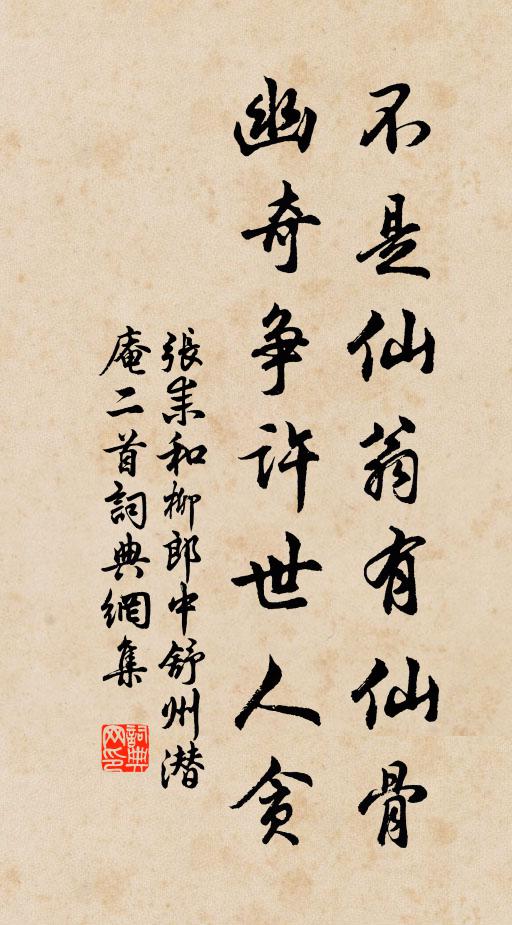 不是仙翁有仙骨
幽奇争许世人贪
張耒和柳郎中舒州潜
庵二首詞典網集
詞典网印